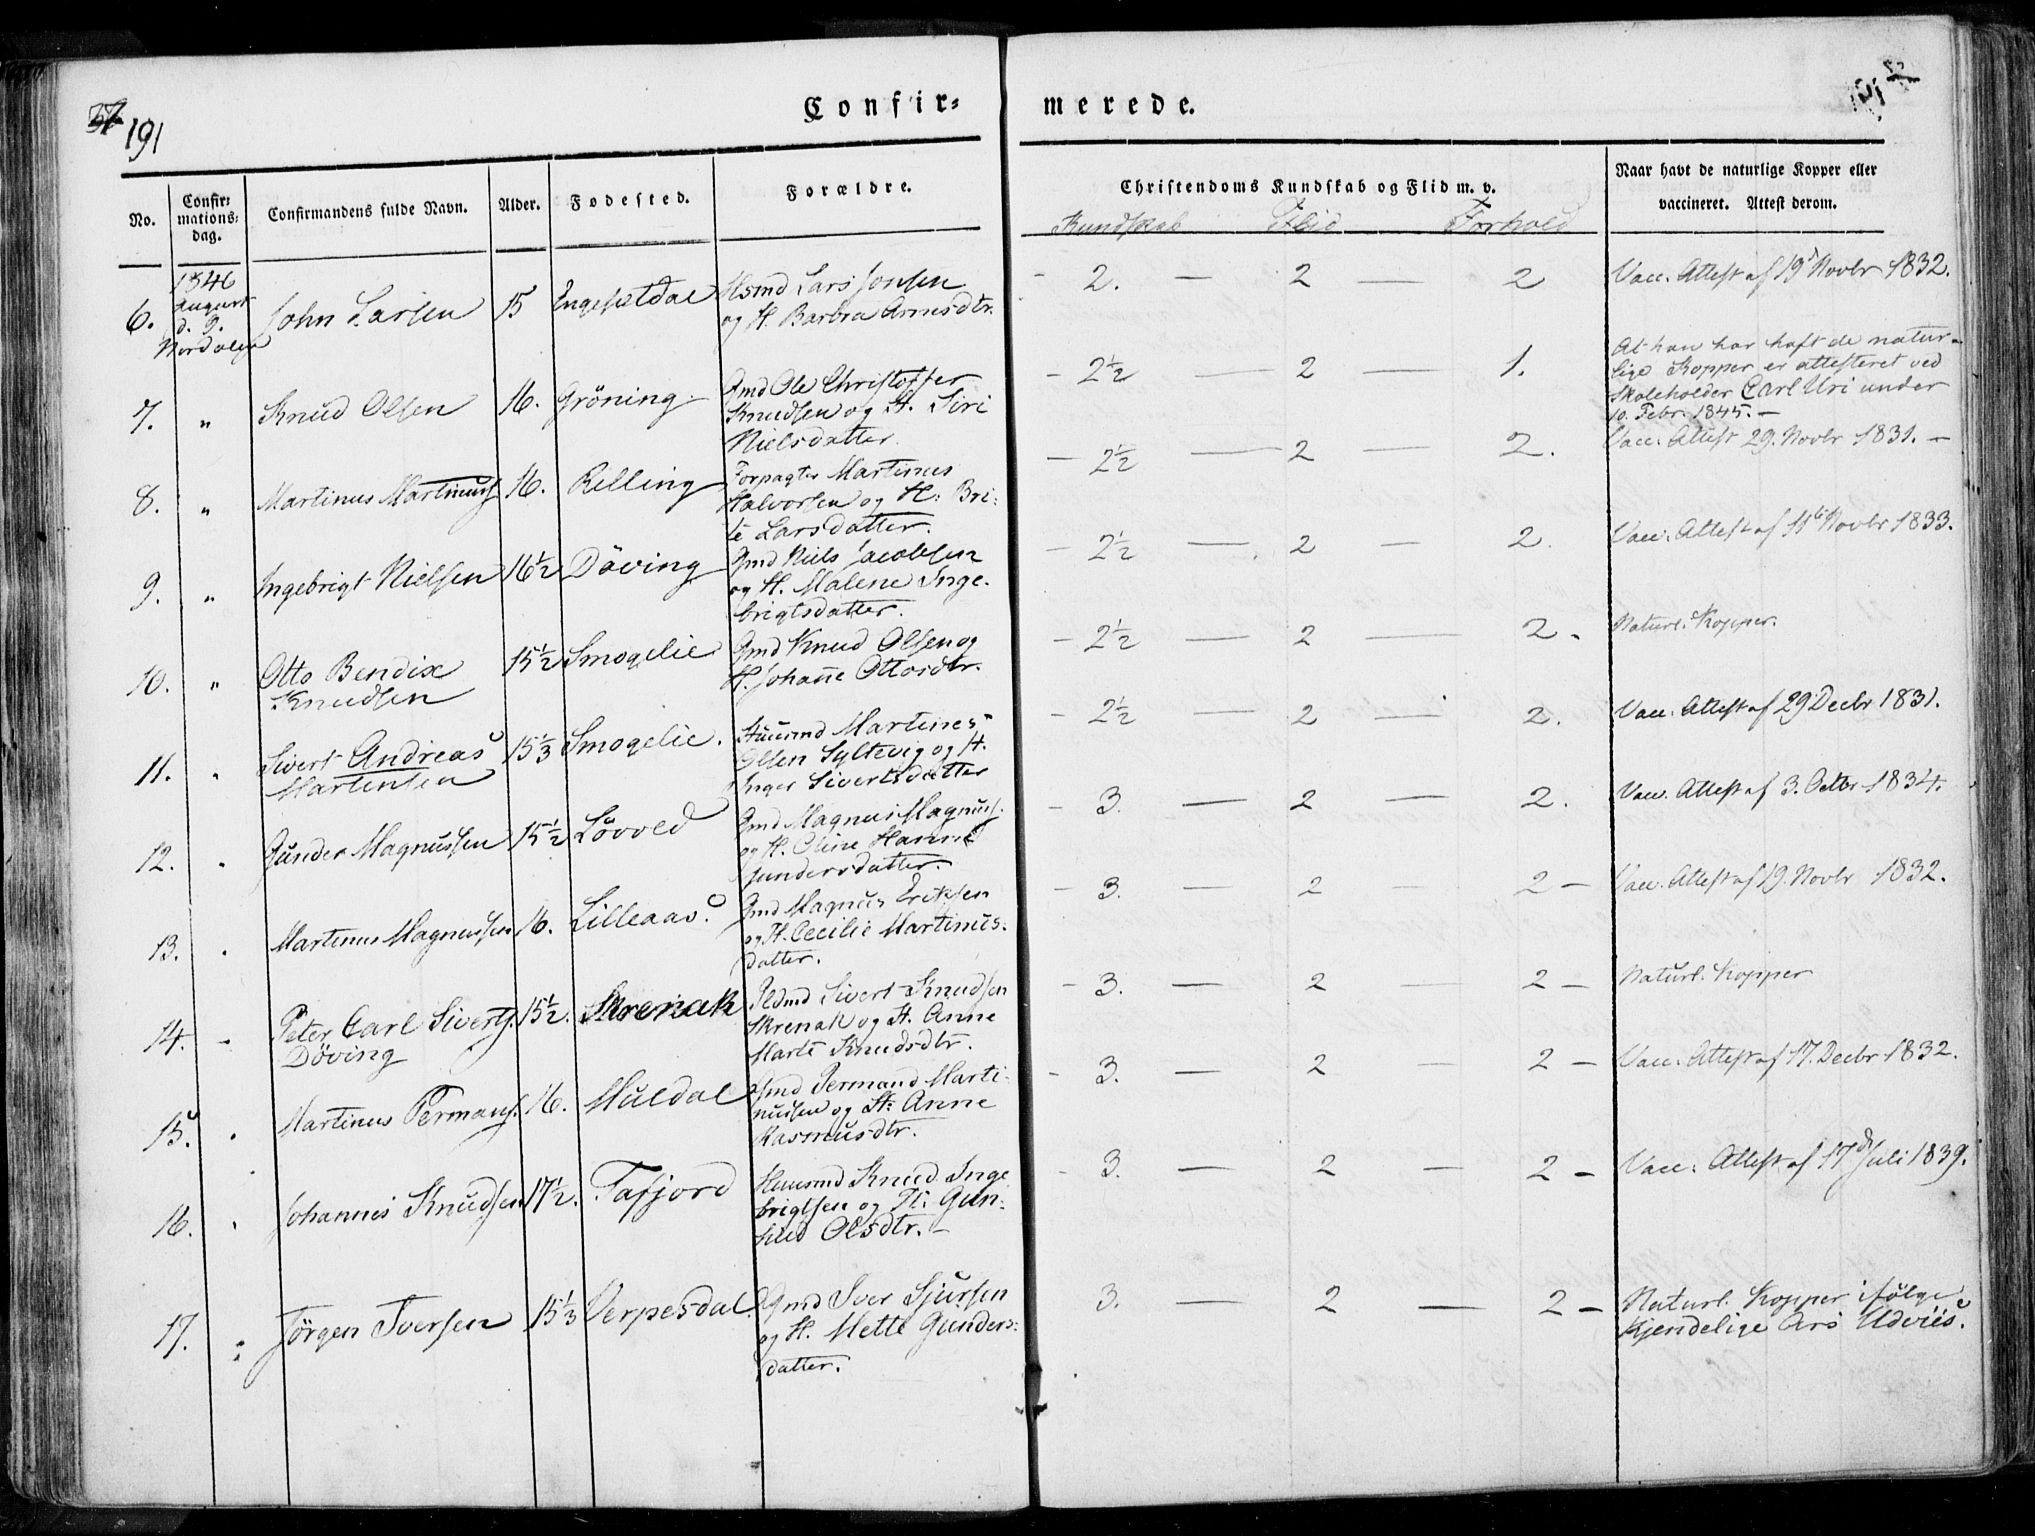 191
Confir=
merede.
No.
Confir=
mations=
dag.
Confirmandens fulde Navn.
Alder.
Fødested.
Forældre.
Christendoms Kundskab og Flid m. v.
Kundskab Flid Forhold
Naar havt de naturlige Kopper eller
vaccineret. Attest derom.
6.
1846
August
d. 9.
Nordalen
John Larsen
15
Engesetdal
Hsmd Lars Jonsen
og H. Barbra Arnesdtr.
- 2. — 2 2
Vacc. Attest af 19d Novbr 1832.
7.
"
Knud Olsen
16.
Gröning.
Gmd Ole Christoffer
Knudsen og H. Siri
Nielsdatter.
- 2½ — 2 — 1.
At han har haft de natur-
lige Kopper er attesteret ved
Skoleholder Carl Uri under
10. Febr. 1845. —
8.
"
Martinus Martinuss.
16.
Relling
Forpagter Martinus
Halvorsen og H. Bri=
te Larsdatter.
- 2½ — 2 — 2.
Vacc. Attest 29. Novbr 1831. —
9.
"
Ingebrigt Nielsen
16½
Döving
Gmd Niels Jacobsen
og H. Malene Inge-
brigtsdatter.
- 2½ — 2 — 2.
Vacc. Attest af 11te Novbr 1833.
10.
"
Otto Bendix
Knudsen
15½
Smogelie
Gmd Knud Olsen og
H. Johanne Ottosdtr.
- 2½ — 2 — 2.
Naturl. Kopper.
11.
"
Sivert Andreas
Martensen
15⅓
Smogelie.
Huusmd Martines
Olsen Syltevig og H.
Inger Sivertsdatter
- 2½ — 2 — 2.
Vacc. Attest af 29 Decbr 1831.
12.
"
Gunder Magnussen
15½
Lövold
Gmd Magnus Magnuss.
og H. Oline Hanne
Gundersdatter.
- 3. — 2 — 2.
Vacc. Attest af 3. Octbr 1834.
13.
"
Martinus Magnussen
16.
Lilleaas.
Gmd Magnus Eriksen
og H. Cecilie Martinus=
datter.
- 3. — 2 — 2 —
Vacc. Attest af 19. Novbr 1832.
14.
"
Peter Carl Siverts.
Döving
15½.
Skrenak
Pldmd Sivert Knudsen
Skrenak og H. Anne
Marte Knudsdtr.
- 3. — 2 — 2 —
Naturl. Kopper
15.
"
Martinus Permans.
16.
Muldal
Gmd Permand Marti-
nussen og H. Anne
Rasmusdtr.
- 3. — 2 — 2 —
Vacc. Attest af 17. Decbr 1832.
16.
"
Johannes Knudsen
17½.
Tafjord
Huusmd Knud Inge
brigtsen og H. Gun=
hild Olsdtr. —
- 3. — 2 — 2 —
Vacc. Attest af 17d Juli 1839.
17.
"
Jörgen Iversen
15⅓
Verpesdal.
Gmd Iver Sjursen
og H. Mette Gunders=
datter.
3. — 2 — 2 —
Naturl. Kopper ifölge
Kjendelige Ars Udviis.